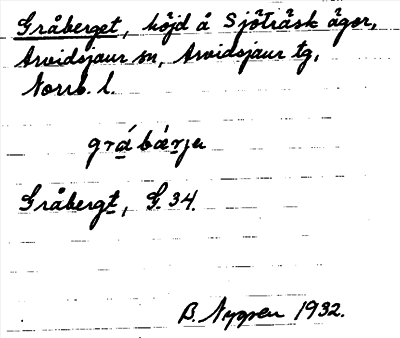 Gråberget, höjd å Sjöträsk ägor,
Arvidsjaur sn, Arvidsjaur tg,
Norrb. l.
grábärje
Gråbergt, G. 34.
B. Nygren 1932.